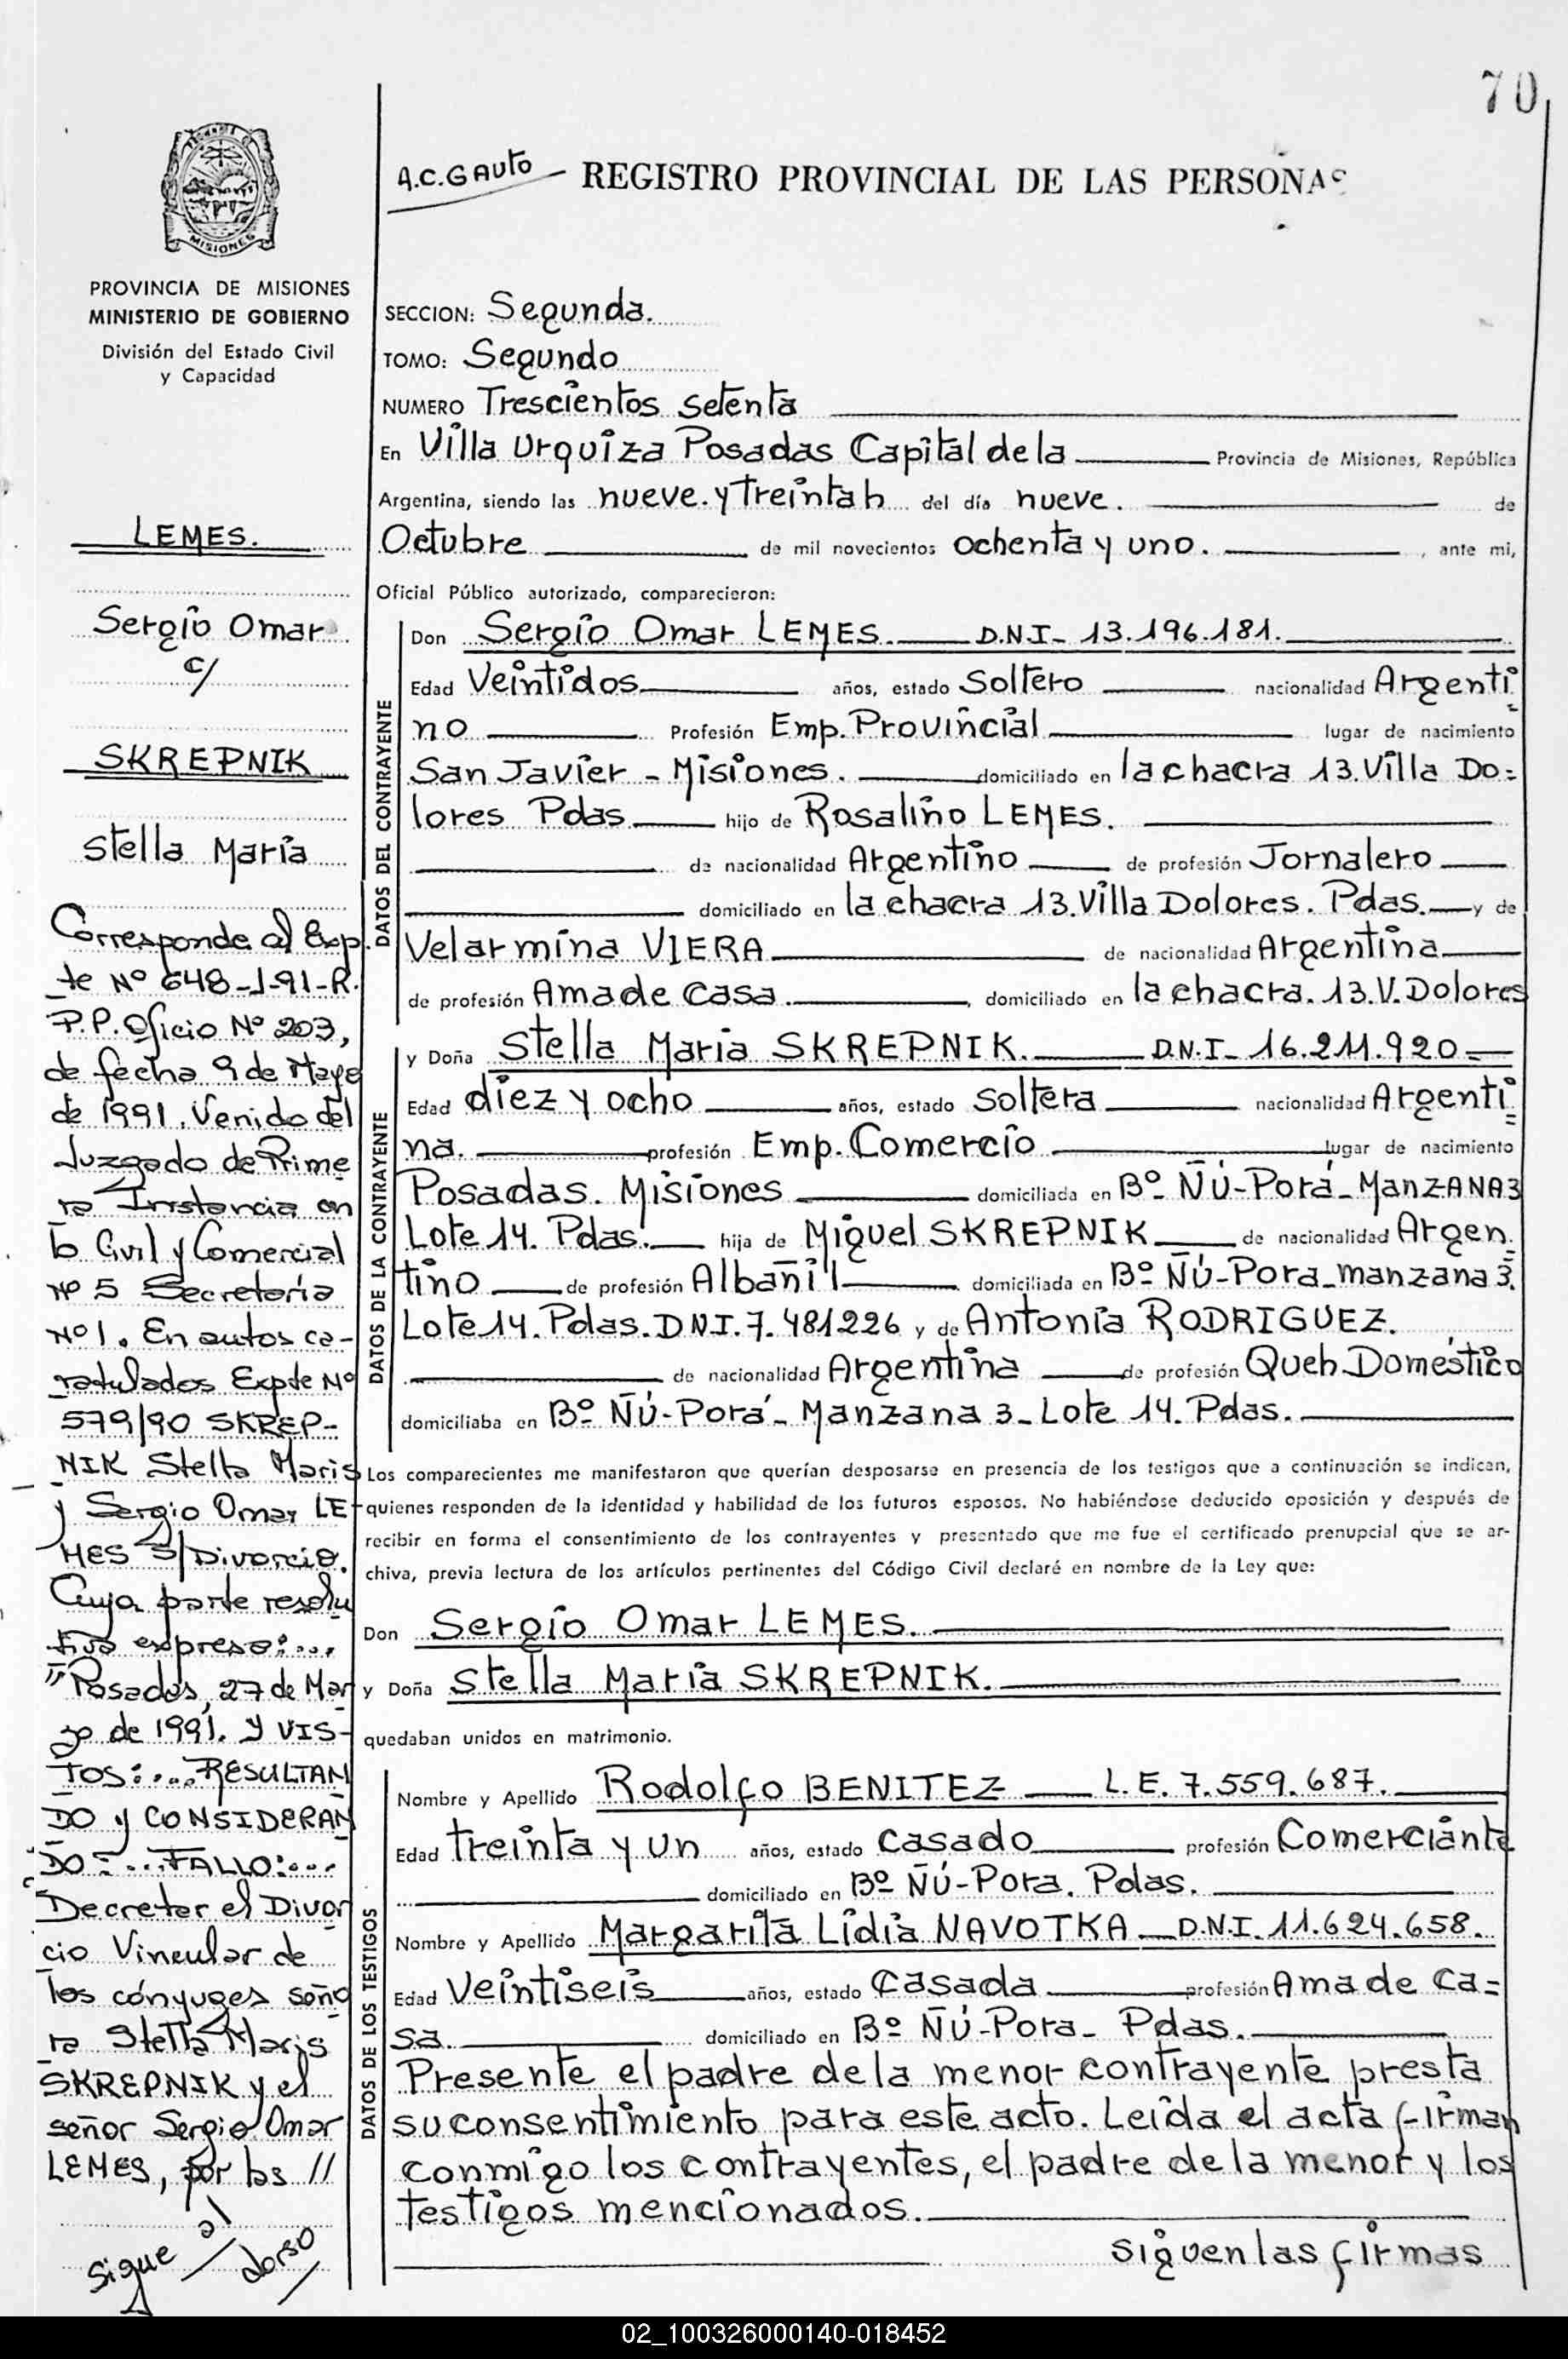 70
A.C.GAUTO - REGISTRO PROVINCIAL DE LAS PERSONAS
MISIONES
PROVINCIA DE MISIONES
MINISTERIO DE GOBIERNO
División del Estado Civil
y Capacidad
LEMES.
Sergio Omar
c/
SKREPNIK
Stella María
Corresponde al Exp.
te Nº 648-J-91-R.
P.P. Oficio Nº 203,
de fecha 9 de Mayo
de 1991. Venido del
Juzgado de Prime
ra Instancia en
lo Civil y Comercial
Nº 5 Secretaria
Nº 1. En autos ca-
ratulados Expte Nº
579/90 SKREP-
NIK Stella Maris
y Sergio Omar LE-
MES S/Divorcio.
Cuya parte resolu
tiva expresa:...
"Posadas, 27 de Mar
zo de 1991. Y VIS-
TOS:... RESULTAN
DO y CONSIDERAN
DO:...FALLO:...
Decretar el Divor
cio Vincular de
los cónyuges seño
ra Stella Maris
SKREPNIK y el
señor Sergio Omar
LEMES, por las //
Sigue al dorso
SECCION: Segunda.
TOMO: Segundo
NUMERO Trescientos setenta
En Villa Urquiza Posadas Capital de la Provincia de Misiones, República
Argentina, siendo las nueve. y Treinta h del día nueve. de
Octubre de mil novecientos ochenta y uno. , ante mi,
Oficial Público autorizado, comparecieron:
DATOS DEL CONTRAYENTE
Don Sergio Omar LEMES. D.N.I- 13.196.181.
Edad Veintidos años, estado Soltero nacionalidad Argenti
no Profesión Emp. Provincial lugar de nacimiento
San Javier - Misiones. domiciliado en la chacra 13. Villa Do=
lores Pdas. hijo de Rosalino LEMES.
de nacionalidad Argentino de profesión Jornalero
domiciliado en la chacra 13. Villa Dolores. Pdas. y de
Velarmina VIERA de nacionalidad Argentina
de profesión Ama de Casa. , domiciliado en la chacra. 13. V. Dolores
DATOS DE LA CONTRAYENTE
y Doña Stella Maria SKREPNIK. D.N.I- 16.211.920=
Edad diez y ocho años, estado Soltera nacionalidad Argenti
na. profesión Emp. Comercio lugar de nacimiento
Posadas. Misiones domiciliada en Bº Ñú-Porá- Manzana 3
Lote 14. Pdas. hija de Miguel SKREPNIK de nacionalidad Argen.
tino de profesión Albañil domiciliada en Bº Ñú-Pora-manzana 3.
Lote 14. Pdas. DNI. 7.481226 y de Antonia RODRIGUEZ.
de nacionalidad Argentina de profesión Queh. Domestico
domiciliaba en Bº Ñú-Porá- Manzana 3- Lote 14. Pdas.
Los comparecientes me manifestaron que querían desposarse en presencia de los testigos que a continuación se indican,
quienes responden de la identidad y habilidad de los futuros esposos. No habiéndose deducido oposición y después de
recibir en forma el consentimiento de los contrayentes y presentado que me fue el certificado prenupcial que se ar-
chiva, previa lectura de los artículos pertinentes del Código Civil declaré en nombre de la Ley que:
Don Sergio Omar LEMES.
y Doña Stella María SKREPNIK.
quedaban unidos en matrimonio.
DATOS DE LOS TESTIGOS
Nombre y Apellido Rodolfo BENITEZ L.E. 7.559.687.
Edad treinta y un años, estado Casado profesión Comerciante
domiciliado en Bº Ñú-Pora. Pdas.
Nombre y Apellido Margarita Lidia NAVOTKA D.N.I. 11.624.658.
Edad Veintiseis años, estado Casada profesión Ama de Ca=
sa. domiciliado en Bº Ñú-Pora- Pdas.
Presente el padre de la menor contrayente presta
su consentimiento para este acto. Leída el acta firman
conmigo los contrayentes, el padre de la menor y los
testigos mencionados.
Siguen las firmas
02_100326000140-018452